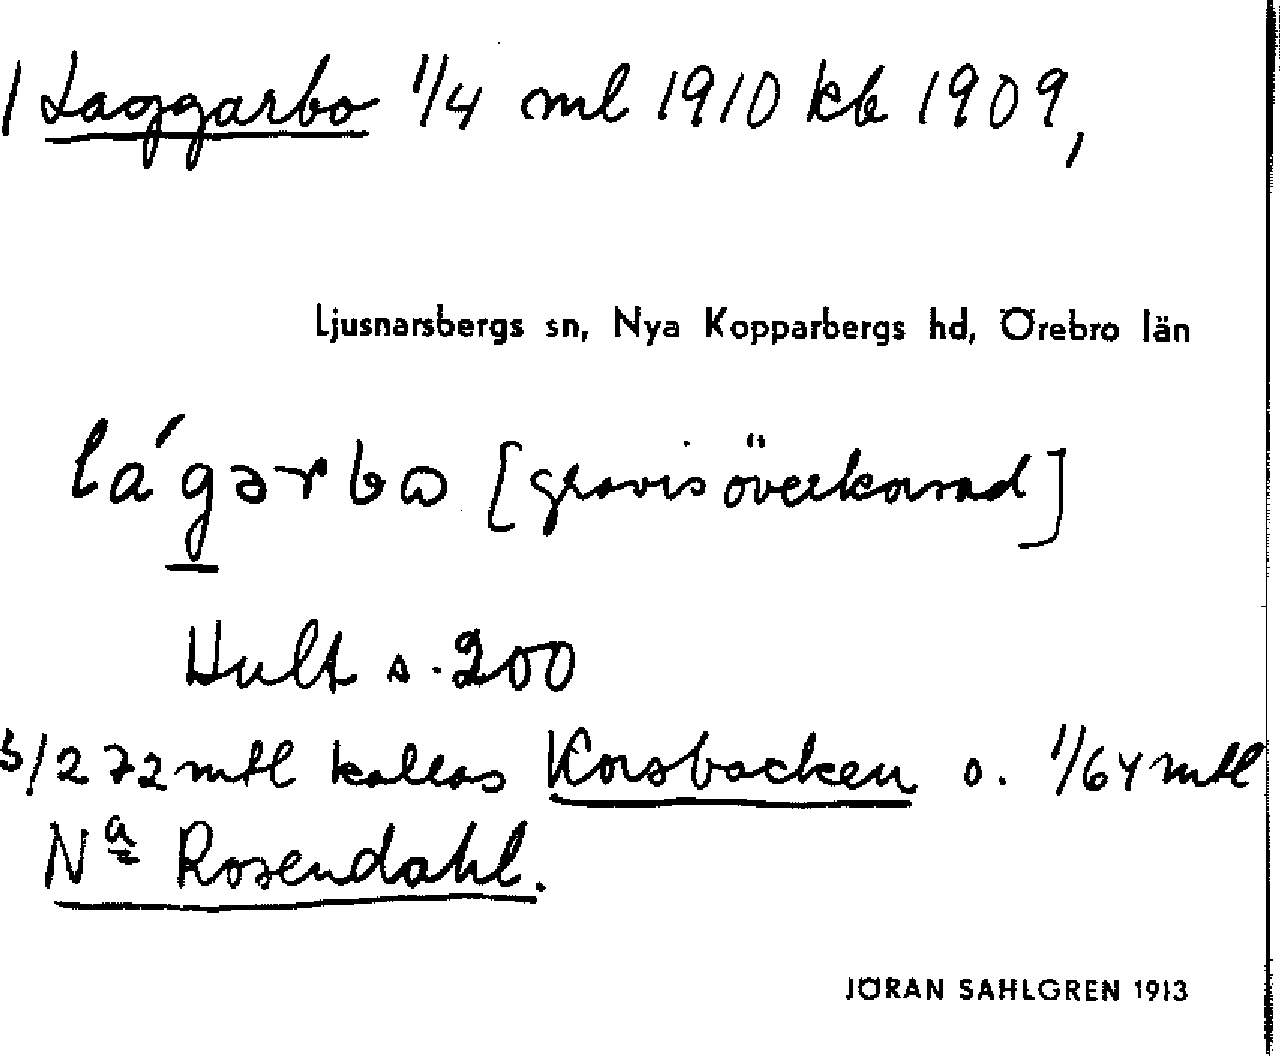 1 Laggarbo 1/4 ml 1910 kb 1909,
Ljusnarsbergs sn, Nya Kopparbergs hd, Örebro län
lágarbo [gravis överkorsad]
Hult s. 200
5/272 mtl kallas Korsbacken o. 1/64 mtl
Na Rosendahl.
JÖRAN SAHLGREN 1913